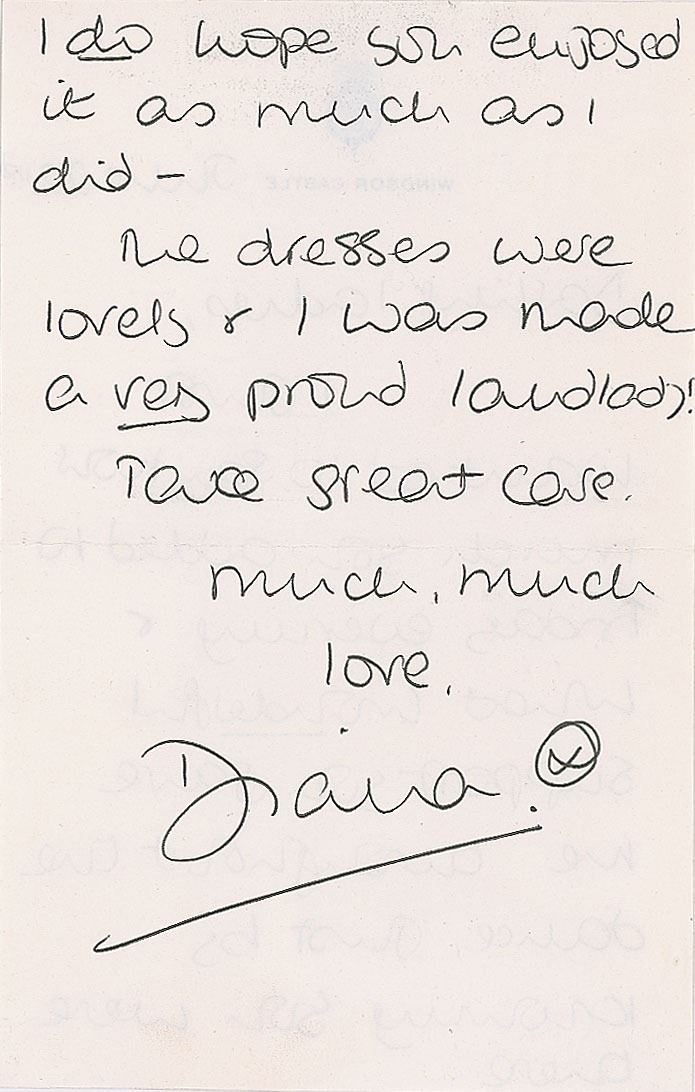 I do hope you enjoyed
it as much as I
did –
The dresses were
lovely & I was made
a very proud landlady!
Take great care.
much, much
love,
Diana. x